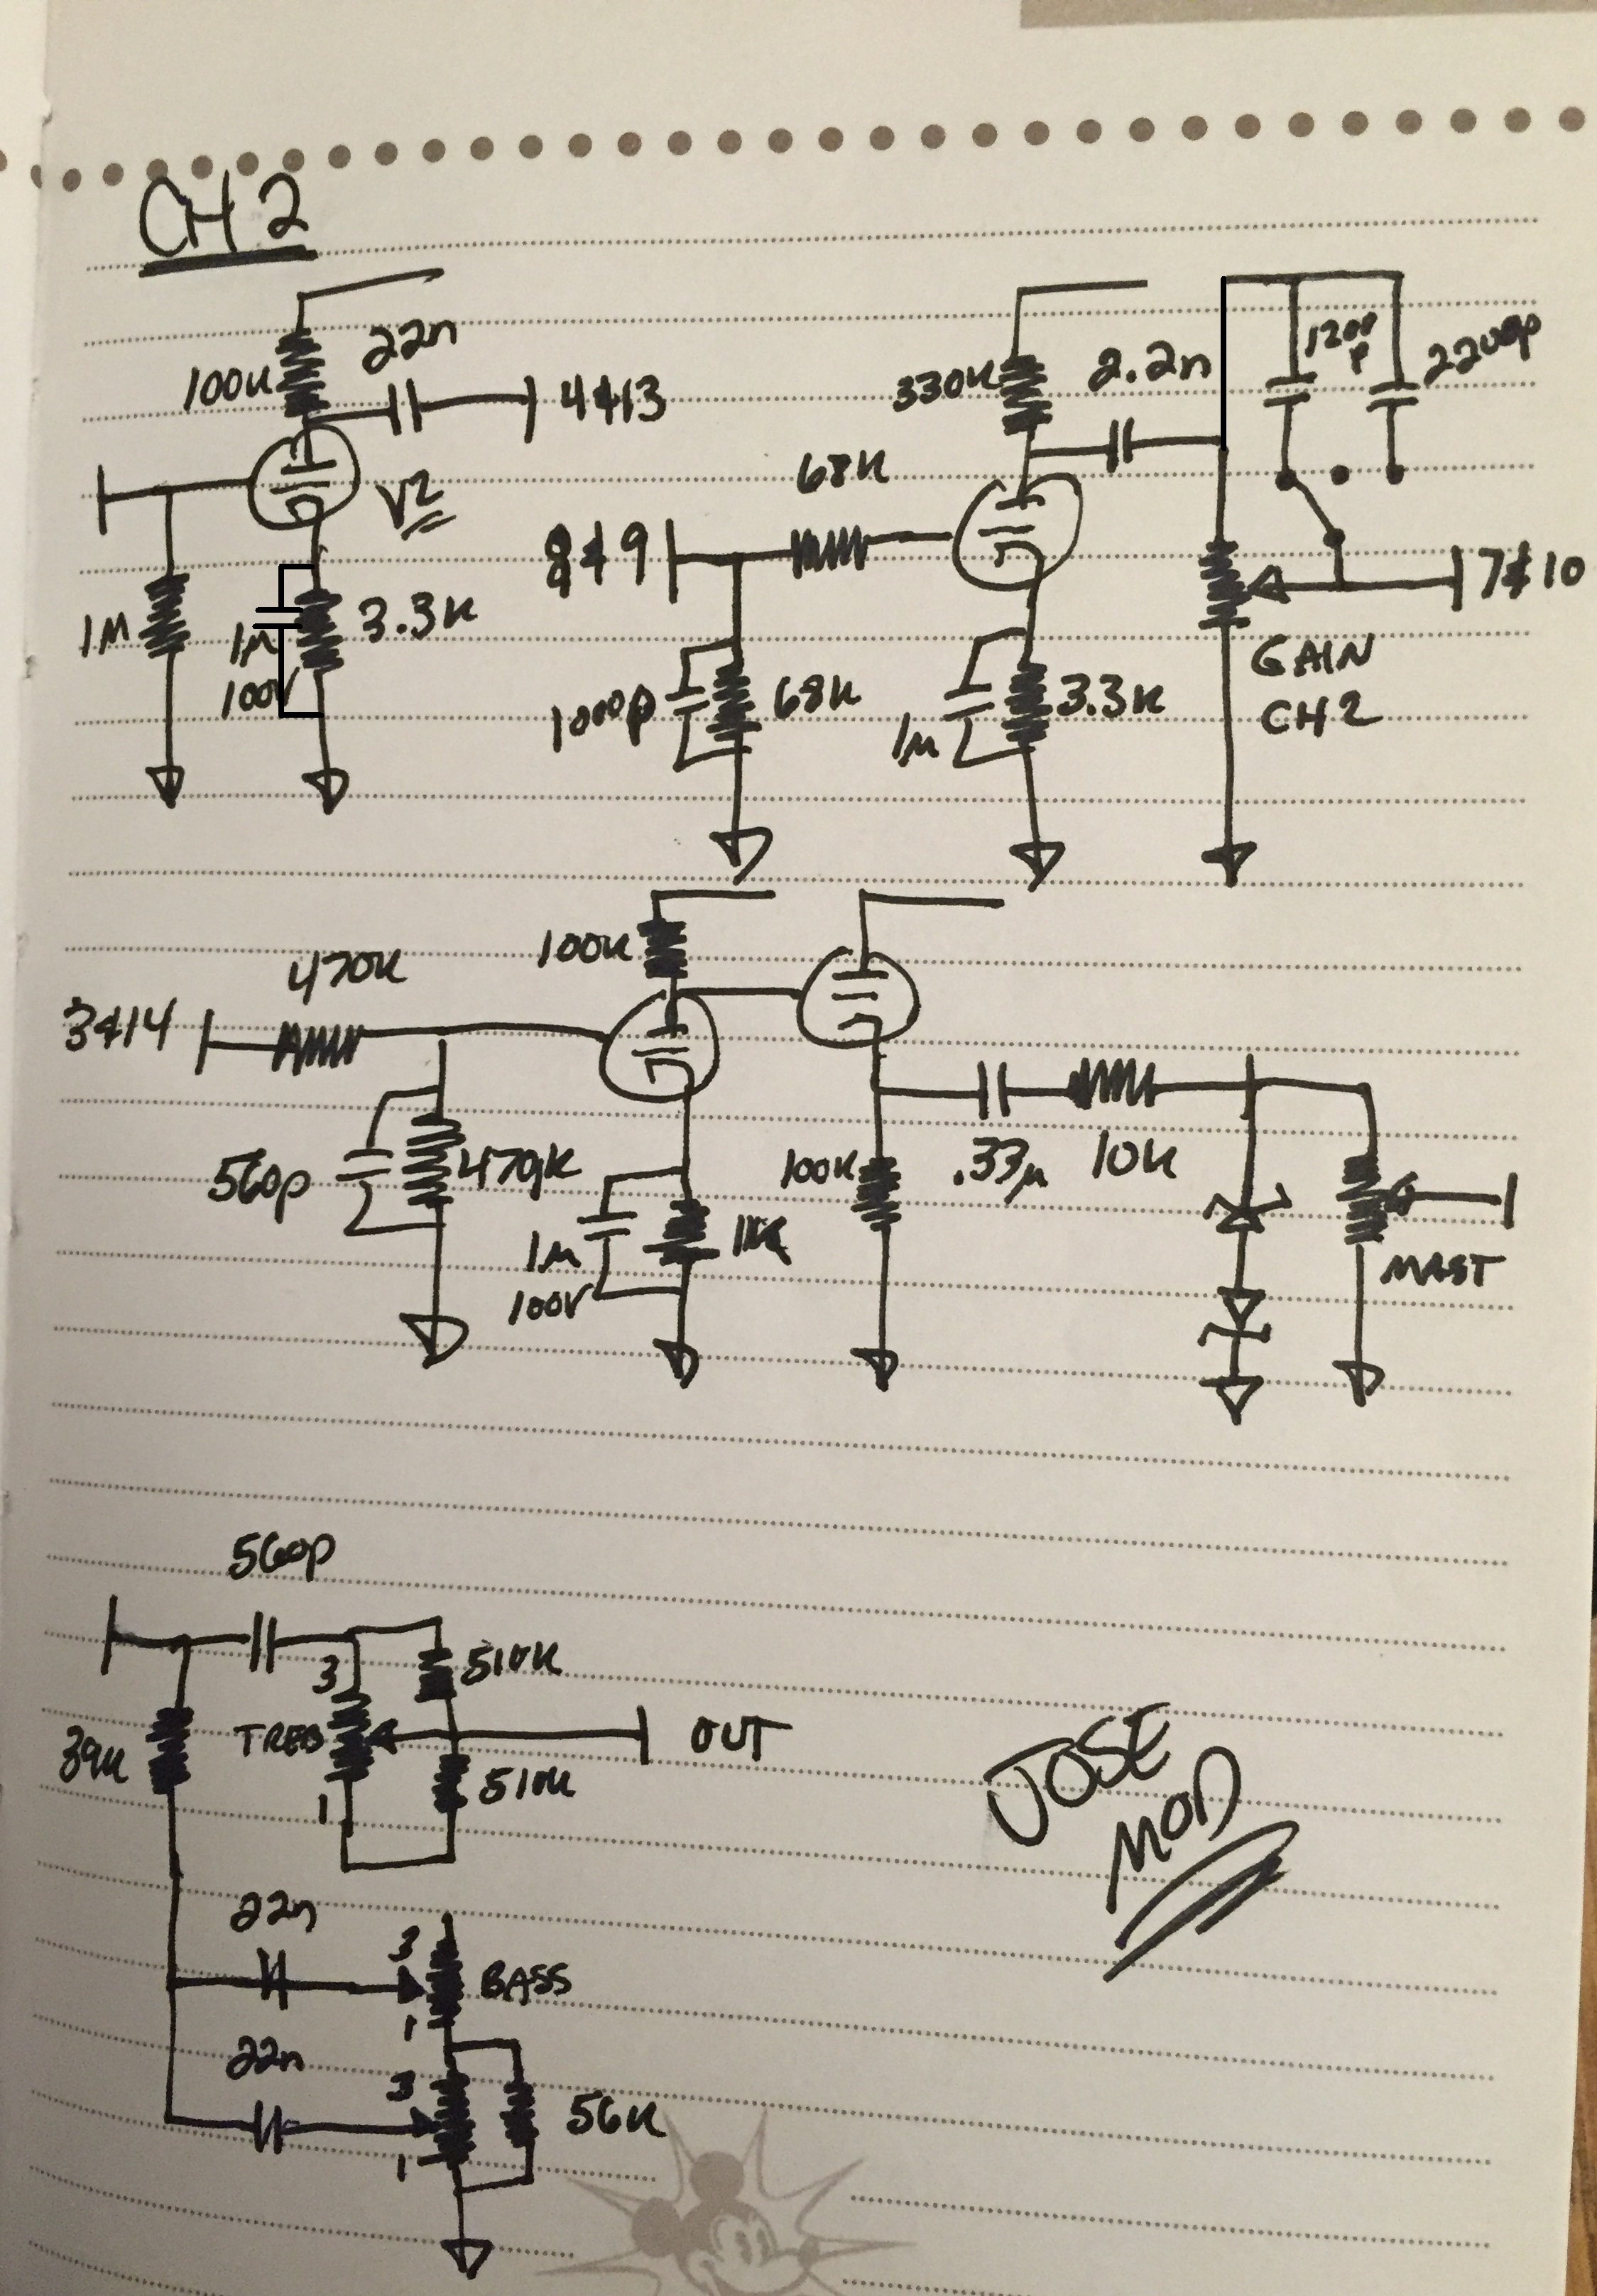 CH 2
22n
100K
4&13
V2
1M
1µ
100V
3.3K
330K
2.2n
1200
p
2200p
68K
8&9
7&10
1000p
68K
1µ
3.3K
GAIN
CH2
100K
470K
3&14
560p
470K
1µ
100V
1K
100K
.33µ
10K
MAST
560p
3
510K
TREB
OUT
39K
1
510K
22n
3
BASS
1
22n
3
56K
1
JOSE
MOD